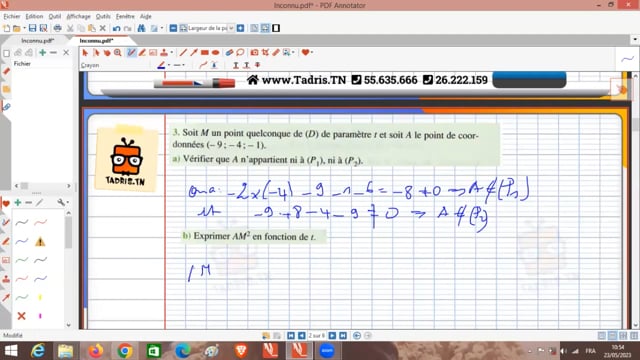 Inconnu.pdf* - PDF Annotator
Fichier Edition Vue Ajout Outils Fenêtre Aide
Largeur de la pa
Inconnu.pdf* Inconnu.pdf*
Crayon
Fichier
www.Tadris.TN 55.635.666 26.222.159
3. Soit M un point quelconque de (D) de paramètre t et soit A le point de coor-
données (– 9 ; – 4 ; – 1).
a) Vérifier que A n'appartient ni à (P₁), ni à (P₂).
TADRIS.TN
ona: -2x(-4) -9 -1 -6 = -8 ≠0 ⟹ A∉(P₁)
et -9 +8 -4 -9 ≠ 0 ⟹ A∉(P₂)
b) Exprimer AM² en fonction de t.
M
Modifié
2 sur 9
FRA
10:54